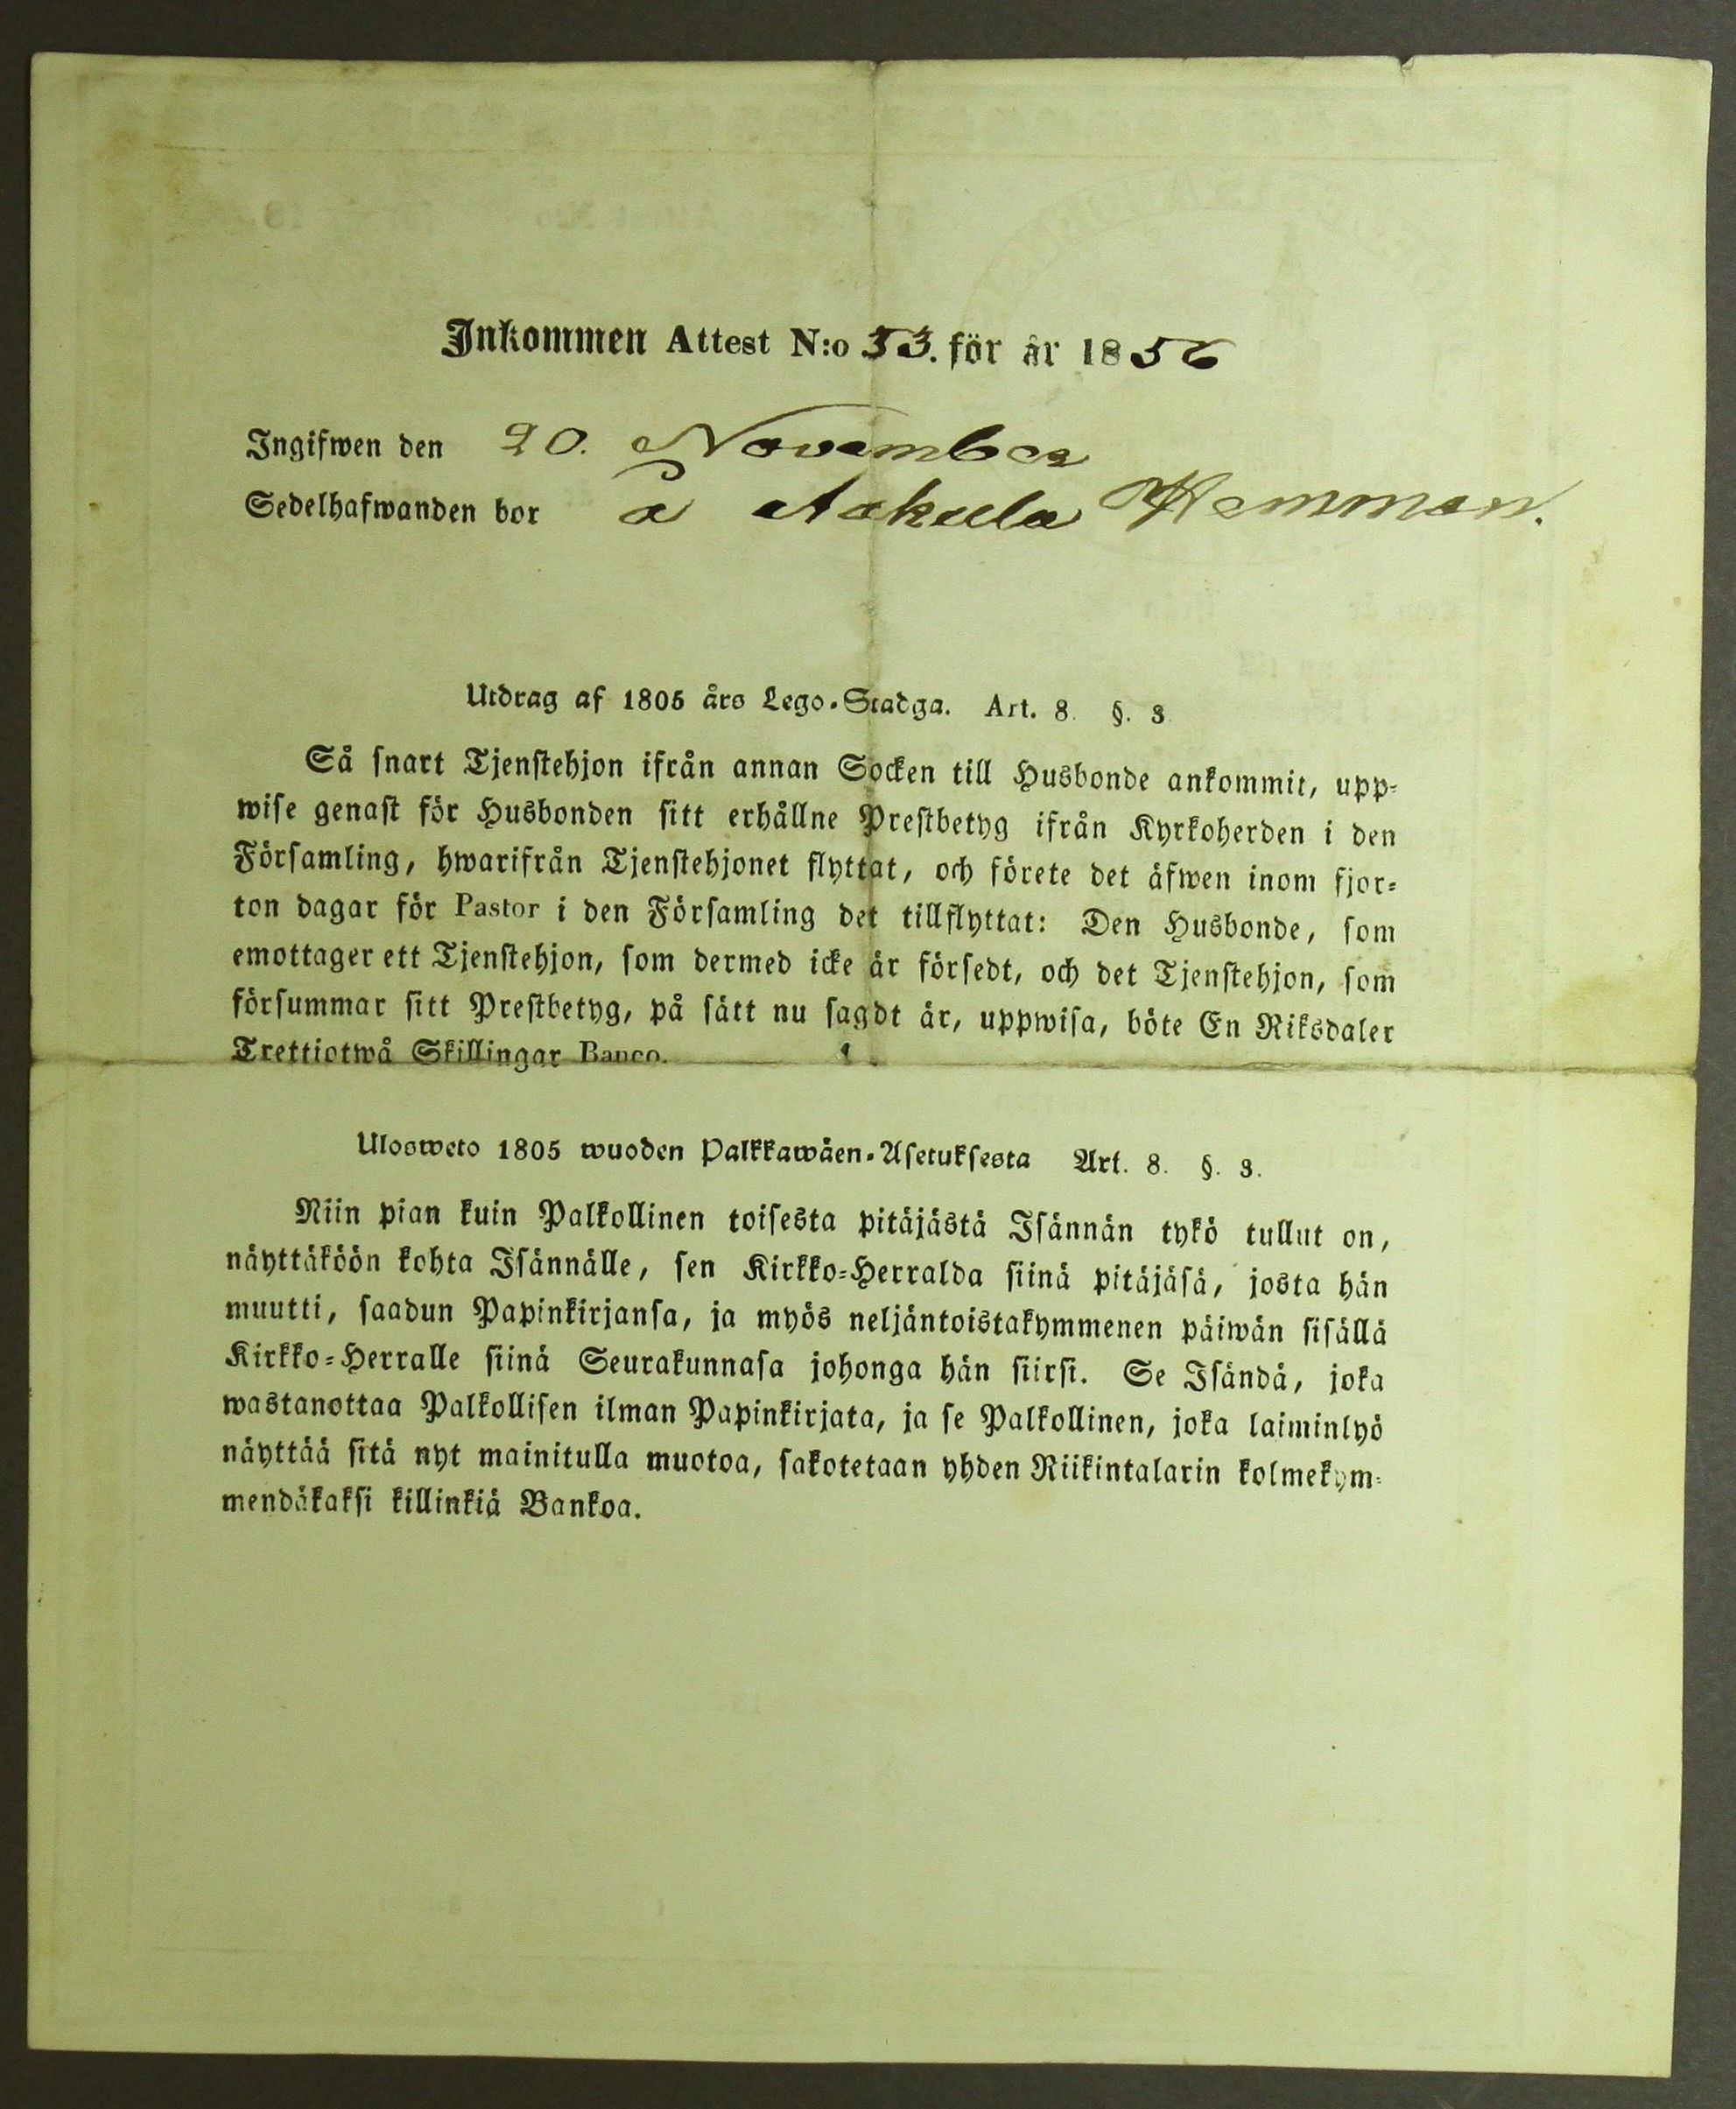 Inkommen Attest N:o 53. för år 1856
Ingifwen den 20. November
Sedelhafwanden bor å Aakula Hemman.
Utdrag af 1805 års Lego-Stadga. Art. 8. §. 3.
Så snart Tjenstehjon ifrån annan Socken till Husbonde ankommit, upp-
wise genast för Husbonden sitt erhållne Prestbetyg ifrån Kyrkoherden i den
Församling, hwarifrån Tjenstehjonet flyttat, och förete det äfwen inom fjor-
ton dagar för Pastor i den Församling det tillflyttat: Den Husbonde, som
emottager ett Tjenstehjon, som dermed icke är försedt, och det Tjenstehjon, som
försummar sitt Prestbetyg, på sätt nu sagdt är, uppwisa, böte En Riksdaler
Trettiotwå Skillingar Banco.
Ulosweto 1805 wuoden Palkkawäen-Asetuksesta Art. 8. §. 3.
Niin pian kuin Palkollinen toisesta pitäjästä Isännän tykö tullut on,
näyttäköön kohta Isännälle, sen Kirkko-Herralda siinä pitäjäsä, josta hän
muutti, saadun Papinkirjansa, ja myös neljäntoistakymmenen päiwän sisällä
Kirkko-Herralle siinä Seurakunnasa johonga hän siirsi. Se Isändä, joka
wastanottaa Palkollisen ilman Papinkirjata, ja se Palkollinen, joka laiminlyö
näyttää sitä nyt mainitulla muotoa, sakotetaan yhden Riikintalarin kolmekym-
mendäkaksi killinkiä Bankoa.